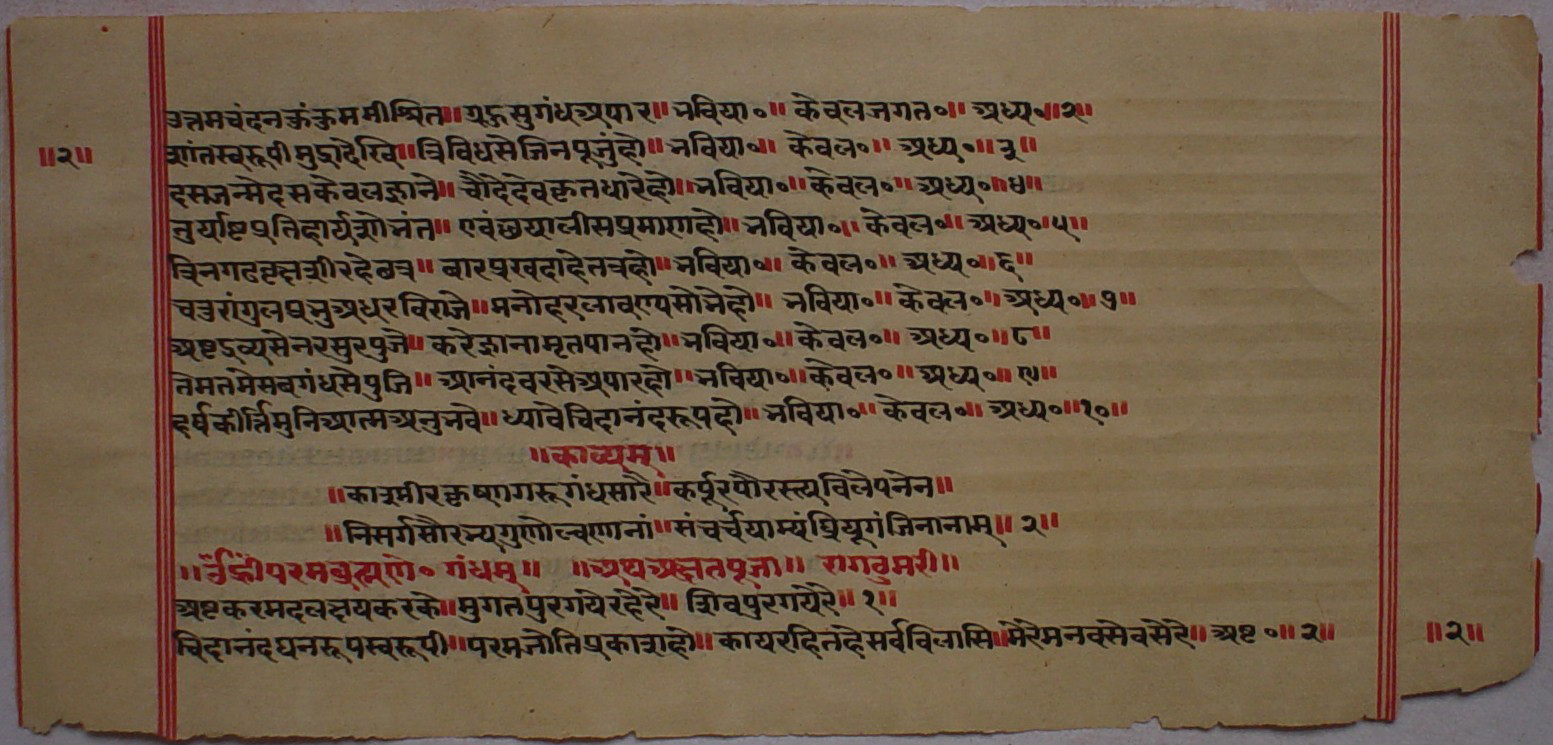 उत्तमचंदनकुंकुममीश्रित॥ शुद्धसुगंधअपार॥ भविया०॥ केवलजगत०॥ अध्य०॥२॥
॥२॥ शांतस्वरूपी मुद्रादेखि॥ त्रिविधसेजिनपूजुंहो॥ भविया०॥ केवल०॥ अध्य०॥३॥
दसजन्मेदसकेवलज्ञाने॥ चौदेदेवकृतधारेहो॥ भविया०॥ केवल०॥ अध्य०॥४॥
तुर्याष्टप्रतिहार्यशोभंत॥ एवंछयालीसप्रमाणहो॥ भविया०॥ केवल०॥ अध्य०॥५॥
त्रिनगढवृक्षशीरहेछत्र॥ बारप्रखदाहेतत्रहो॥ भविया०॥ केवल०॥ अध्य०॥६॥
चउरांगुलप्रभुअधरविराजे॥ मनोहरलावण्यसोभेहो॥ भविया०॥ केवल०॥ अध्य०॥७॥
अष्टद्रव्यसेनरसुरपुजे॥ करेज्ञानामृतपानहो॥ भविया०॥ केवल०॥ अध्य०॥८॥
तेमतमेसबगंधसेपुजि॥ आनंदवरसेअपारहो॥ भविया०॥ केवल०॥ अध्य०॥९॥
हर्षकीर्त्तिमुनिआत्मअनुभवे॥ ध्यावेचिदानंदरूपहो॥ भविया०॥ केवल०॥ अध्य०॥१०॥
॥काव्यम्॥
॥काश्मीरकृष्णागरूगंधसारै॥ कर्पूरपौरस्त्यविलेपनेन॥
॥निसर्गसौरभ्यगुणोल्वणानां॥ संचर्चयाम्यंघ्रियूगंजिनानाम्॥२॥
॥ॐह्रीँपरमब्रह्मणे० गंधम्॥ ॥अथअक्षतपूजा॥ रागठुमरी॥
अष्टकरमदलक्षयकरके॥ मुगतपुरगयेरहेरे॥ शिवपुरगयेरे॥१॥
चिदानंदघनरूपस्वरूपी॥ परमजोतिप्रकाशहो॥ कायरहितहेसर्वविलासि॥ मेरेमनवसेवसेरे॥ अष्ट०॥२॥ ॥२॥